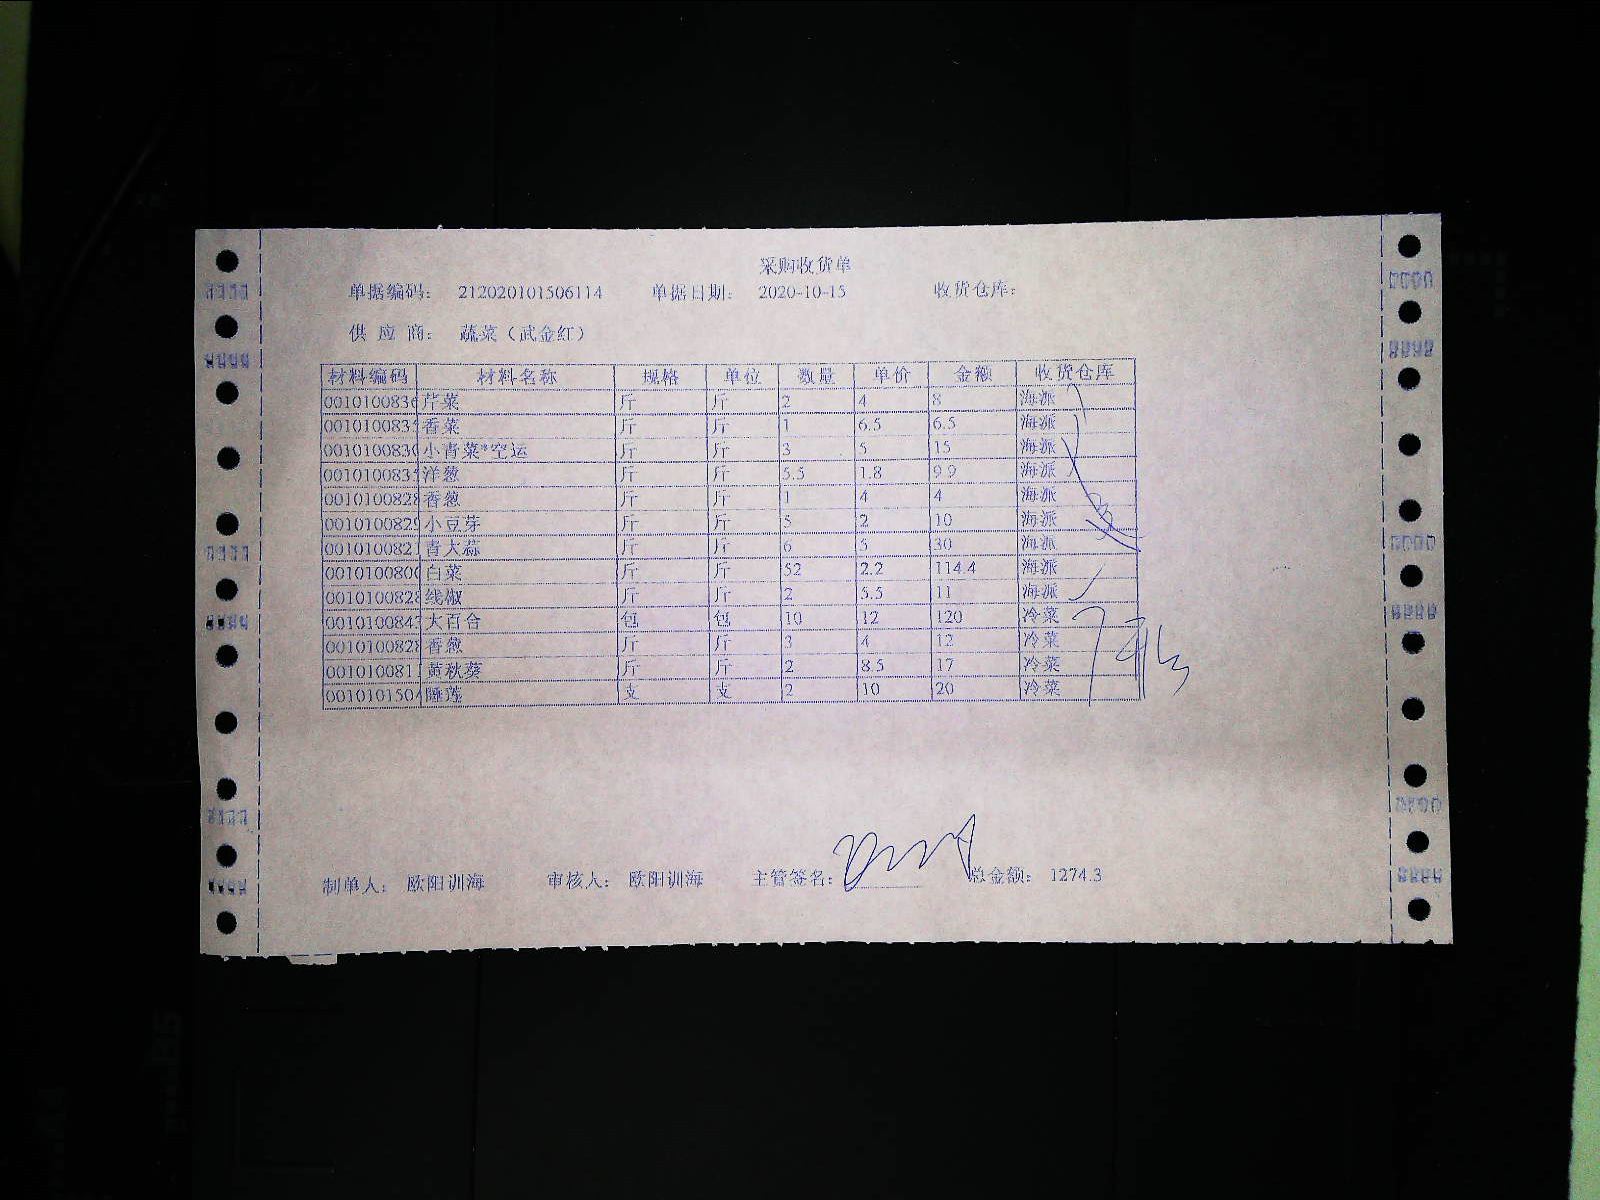 采购收货单
单据编码： 212020101506114 单据日期： 2020-10-15 收货仓库：
供 应 商： 蔬菜（武金红）
材料编码 材料名称 规格 单位 数量 单价 金额 收货仓库
0010100836 芹菜 斤 斤 2 4 8 海派
001010083 香菜 斤 斤 1 6.5 6.5 海派
001010083 小青菜*空运 斤 斤 3 5 15 海派
001010083 洋葱 斤 斤 5.5 1.8 9.9 海派
001010082 香葱 斤 斤 1 4 4 海派
001010082 小豆芽 斤 斤 5 2 10 海派
001010082 青大蒜 斤 斤 6 5 30 海派
001010080 白菜 斤 斤 52 2.2 114.4 海派
001010082 线椒 斤 斤 2 5.5 11 海派
001010084 大百合 包 包 10 12 120 冷菜
001010082 香葱 斤 斤 3 4 12 冷菜
001010081 黄秋葵 斤 斤 2 8.5 17 冷菜
001010150 睡莲 支 支 2 10 20 冷菜
制单人： 欧阳训海 审核人： 欧阳训海 主管签名： 总金额： 1274.3